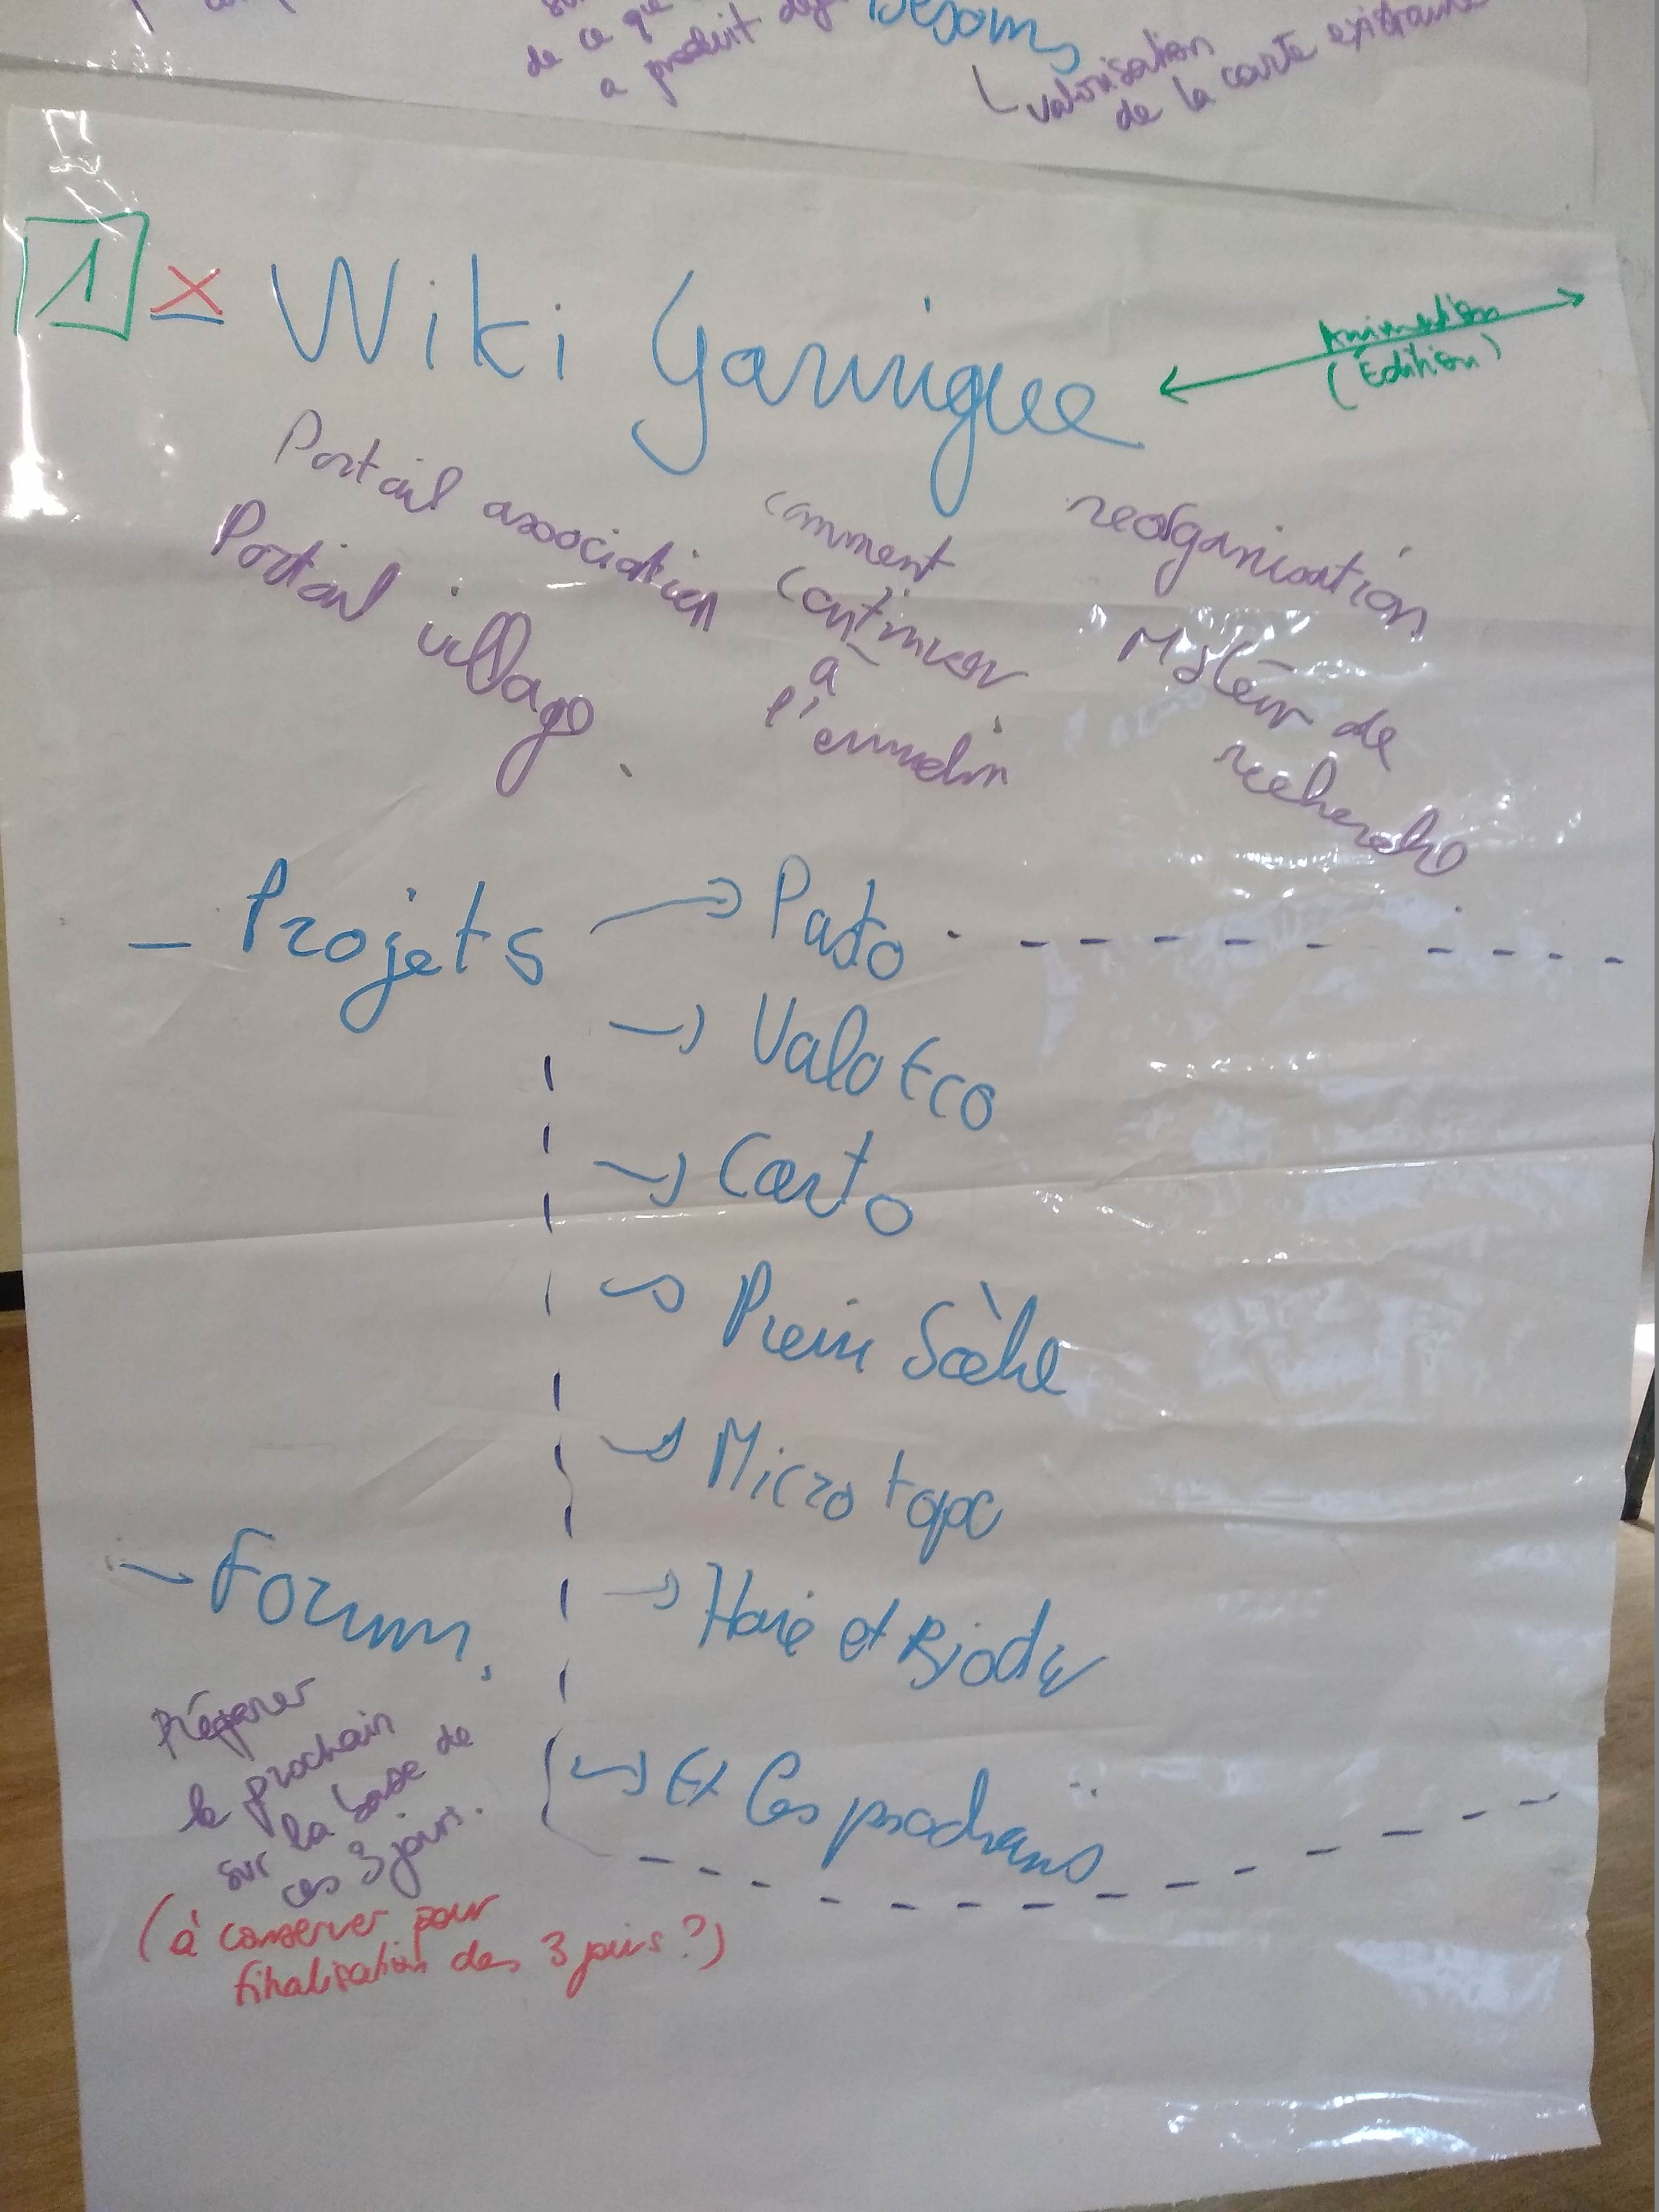 de ce que
a produit
Besoins
valorisation
de la carte existante
1
Wiki Garrigue
Animation
(Edition)
Portail association
Portail village
comment
continuer
à
l'
reorganisation
Moteur de
recherche
- Projets → Pasto
→ Valo Eco
→ Carto
→ Pierre Sèche
→ Micro topo
→ Haie et Biodiv
→ Et les prochains
- Forum
Préparer
le prochain
sur la base de
ces 3 jours.
(à conserver pour
finalisation des 3 jours ?)